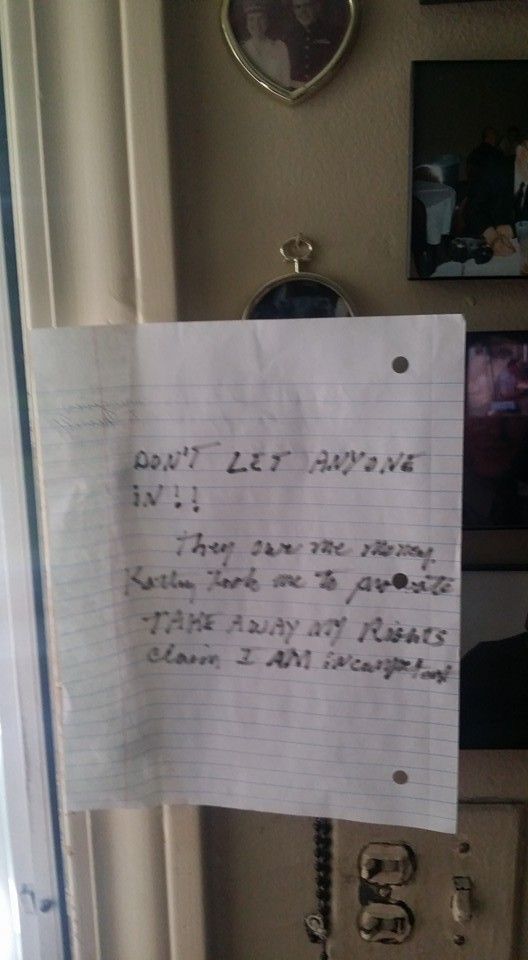 DON'T LET ANYONE
IN!!
They owe me money
Kathy took me to probate
TAKE AWAY MY RIGHTS
claim I AM incompetent